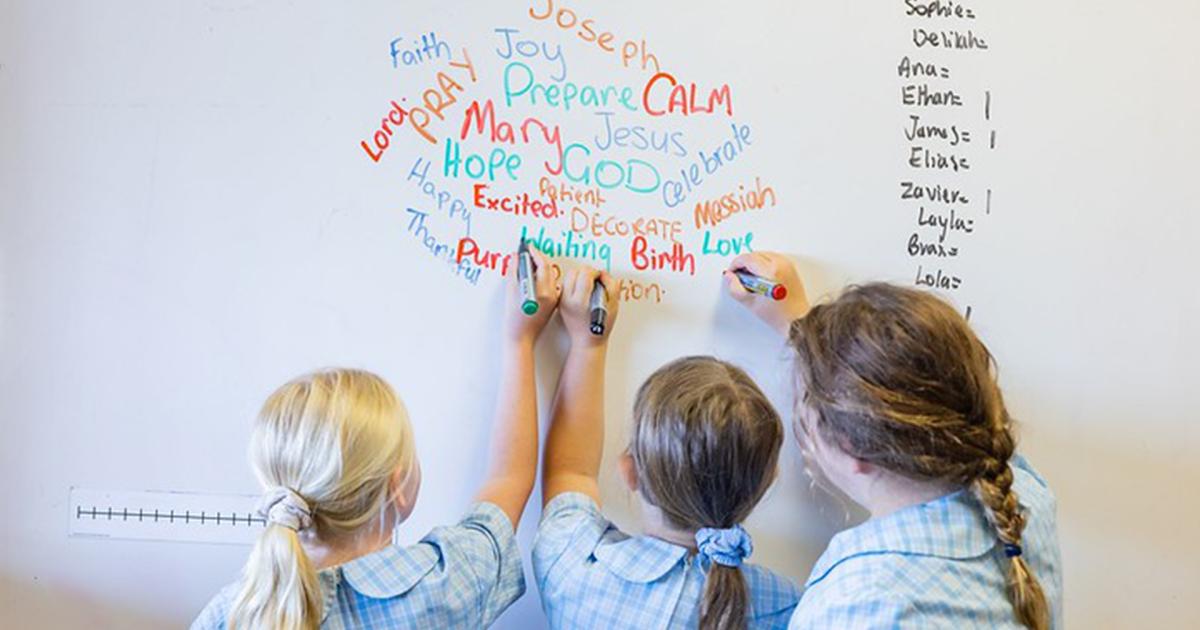 Joseph
Faith Joy
PRAY Prepare CALM
Lord. Mary Jesus
Hope GOD Celebrate
Happy Excited. Patient
DECORATE Massiah
Thankful Waiting Birth Love
Sophie=
Delilah=
Ana=
Ethan= |
James= |
Elias=
Zavier= |
Layla=
Brax=
Lola=